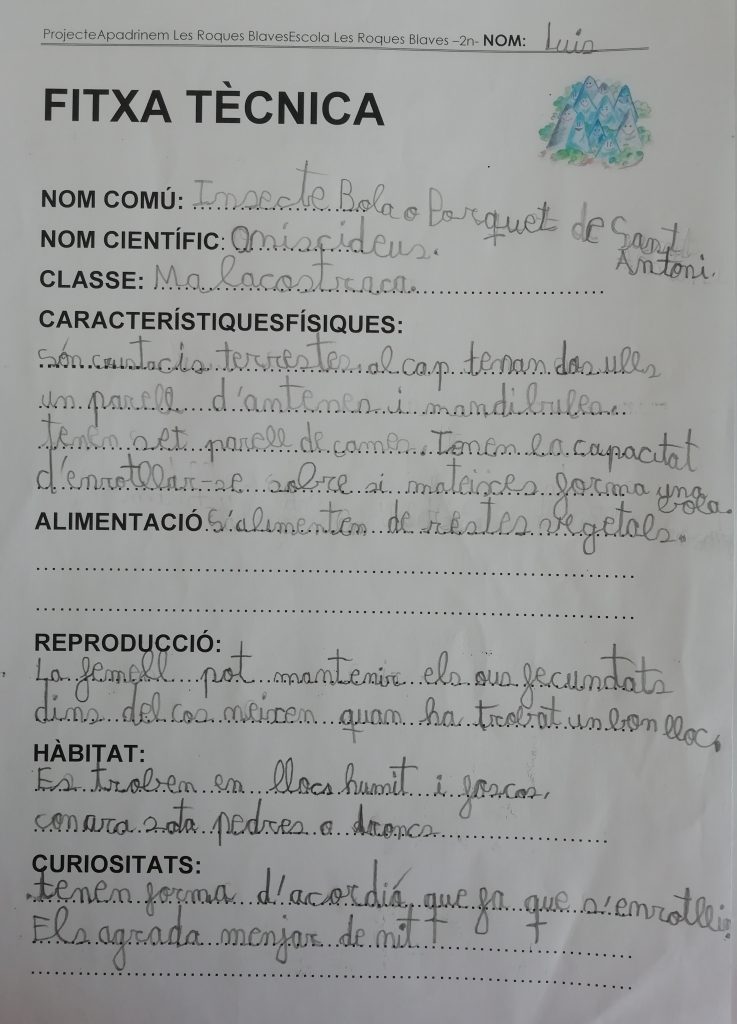 ProjecteApadrinem Les Roques BlavesEscola Les Roques Blaves –2n- NOM: Luis
FITXA TÈCNICA
NOM COMÚ: Insecte Bola o Porquet de Sant Antoni.
NOM CIENTÍFIC: Oniscideus.
CLASSE: Malacostraca.
CARACTERÍSTIQUESFÍSIQUES:
Són crustacis terrestes, al cap tenan dos ulls
un parell d'antenes i mandibules.
tenen set parell de cames. Tenen la capacitat
d'enrotllar-se sobre si mateixes forma una bola.
ALIMENTACIÓ S'alimenten de restes vegetals.
REPRODUCCIÓ:
La femell pot mantenir els ous fecundats
dins del cos neixen quan ha trobat un bon lloc.
HÀBITAT:
Es troben en llocs humit i foscos,
conara sota pedres o troncs
CURIOSITATS:
tenen forma d'acordiá que fa que s'enrotlli.
Els agrada menjar de nit